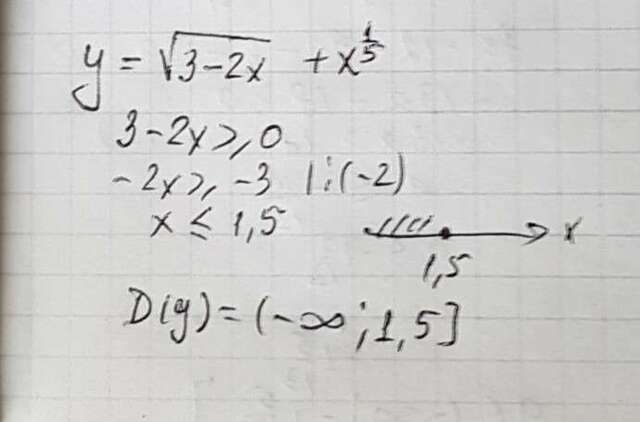 y = √(3-2x) + x^(1/5)
3-2x ≥ 0
-2x ≥ -3 |:(-2)
x ≤ 1,5
x
1,5
D(y) = (-∞; 1,5]